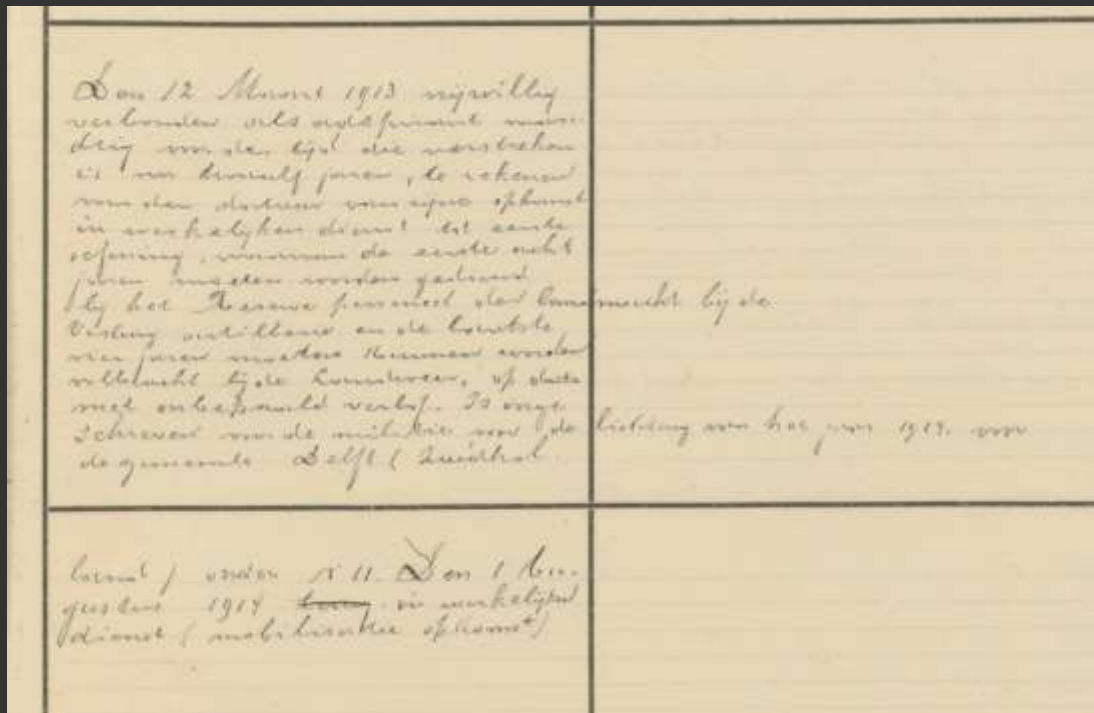 Den 12 Maart 1913 vrijwillig
verbonden als adspirant vaan-
drig voor den tijd die verstreken
is na twaalf jaren, te rekenen
van den datum van zijne opkomst
in werkelijken dienst tot eerste
oefening, waarvan de eerste acht
jaren moeten worden gediend
bij het Reserve personeel der landmacht bij de
Vesting artillerie en de laatste
vier jaren moeten kunnen worden
volbracht bij de Landweer, op dato
met onbepaald verlof. Is inge-
schreven voor de militie voor de lichting van het jaar 1914 voor
de gemeente Delft (Zuidhol
land) onder N 11. Den 1 Au-
gustus 1914 in werkelijken
dienst (mobilisatie opkomst)